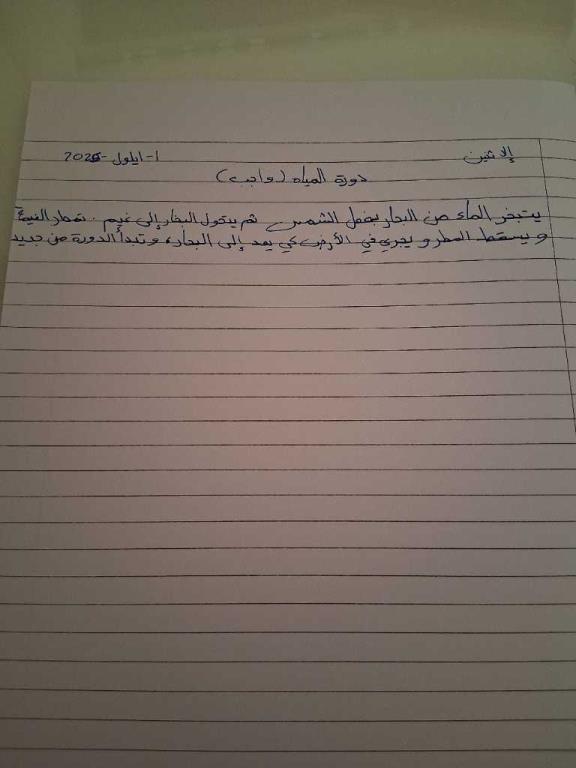 إلاثنين 1-ايلول-2025
دورة المياه (واجب)
يتبخر الماء من البحار بفضل الشمس ثم يتحول البخار إلى غيم. تمطر الغيمة
و يسقط المطر و يجري في الأرض كي يعد إلى البحار، و تبدأ الدورة من جديد